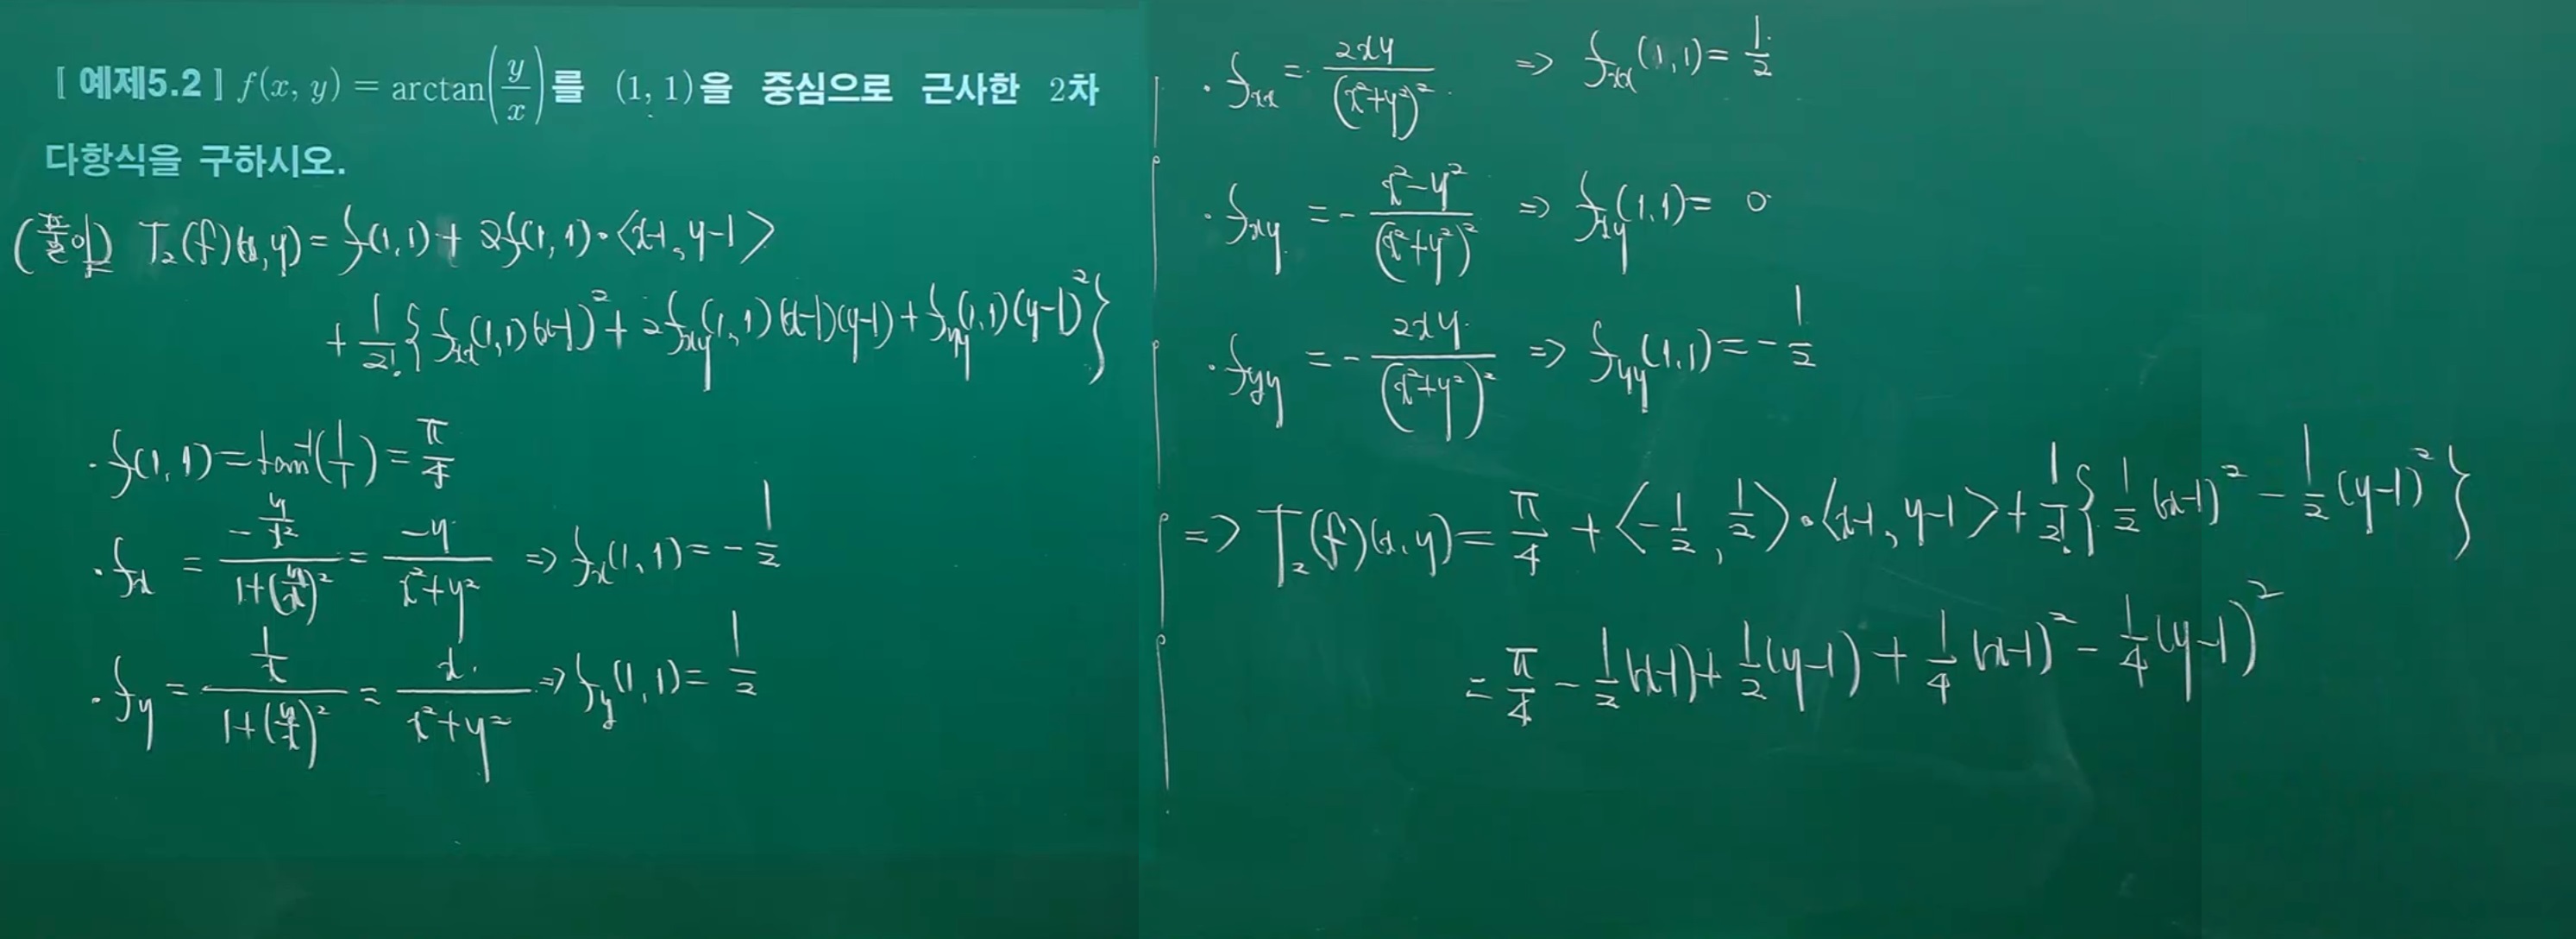 [예제5.2] f(x, y) = arctan(y/x)를 (1, 1)을 중심으로 근사한 2차
다항식을 구하시오.
(풀이) T₂(f)(x, y) = f(1, 1) + ∇f(1, 1)•<x-1, y-1>
+ 1/2! {fxx(1,1)(x-1)² + 2fxy(1, 1)(x-1)(y-1) + fyy(1,1)(y-1)²}
· f(1, 1) = tan⁻¹(1/1) = π/4
· fx = (-y/x²)/(1+(y/x)²) = -y/(x²+y²) ⇒ fx(1, 1) = -1/2
· fy = (1/x)/(1+(y/x)²) = x/(x²+y²) ⇒ fy(1, 1) = 1/2
· fxx = 2xy/(x²+y²)² ⇒ fxx(1, 1) = 1/2
· fxy = - (x²-y²)/(x²+y²)² ⇒ fxy(1,1) = 0
· fyy = - 2xy/(x²+y²)² ⇒ fyy(1,1) = -1/2
⇒ T₂(f)(x, y) = π/4 + <-1/2, 1/2>•<x-1, y-1> + 1/2! {1/2(x-1)² - 1/2(y-1)²}
= π/4 - 1/2(x-1) + 1/2(y-1) + 1/4(x-1)² - 1/4(y-1)²